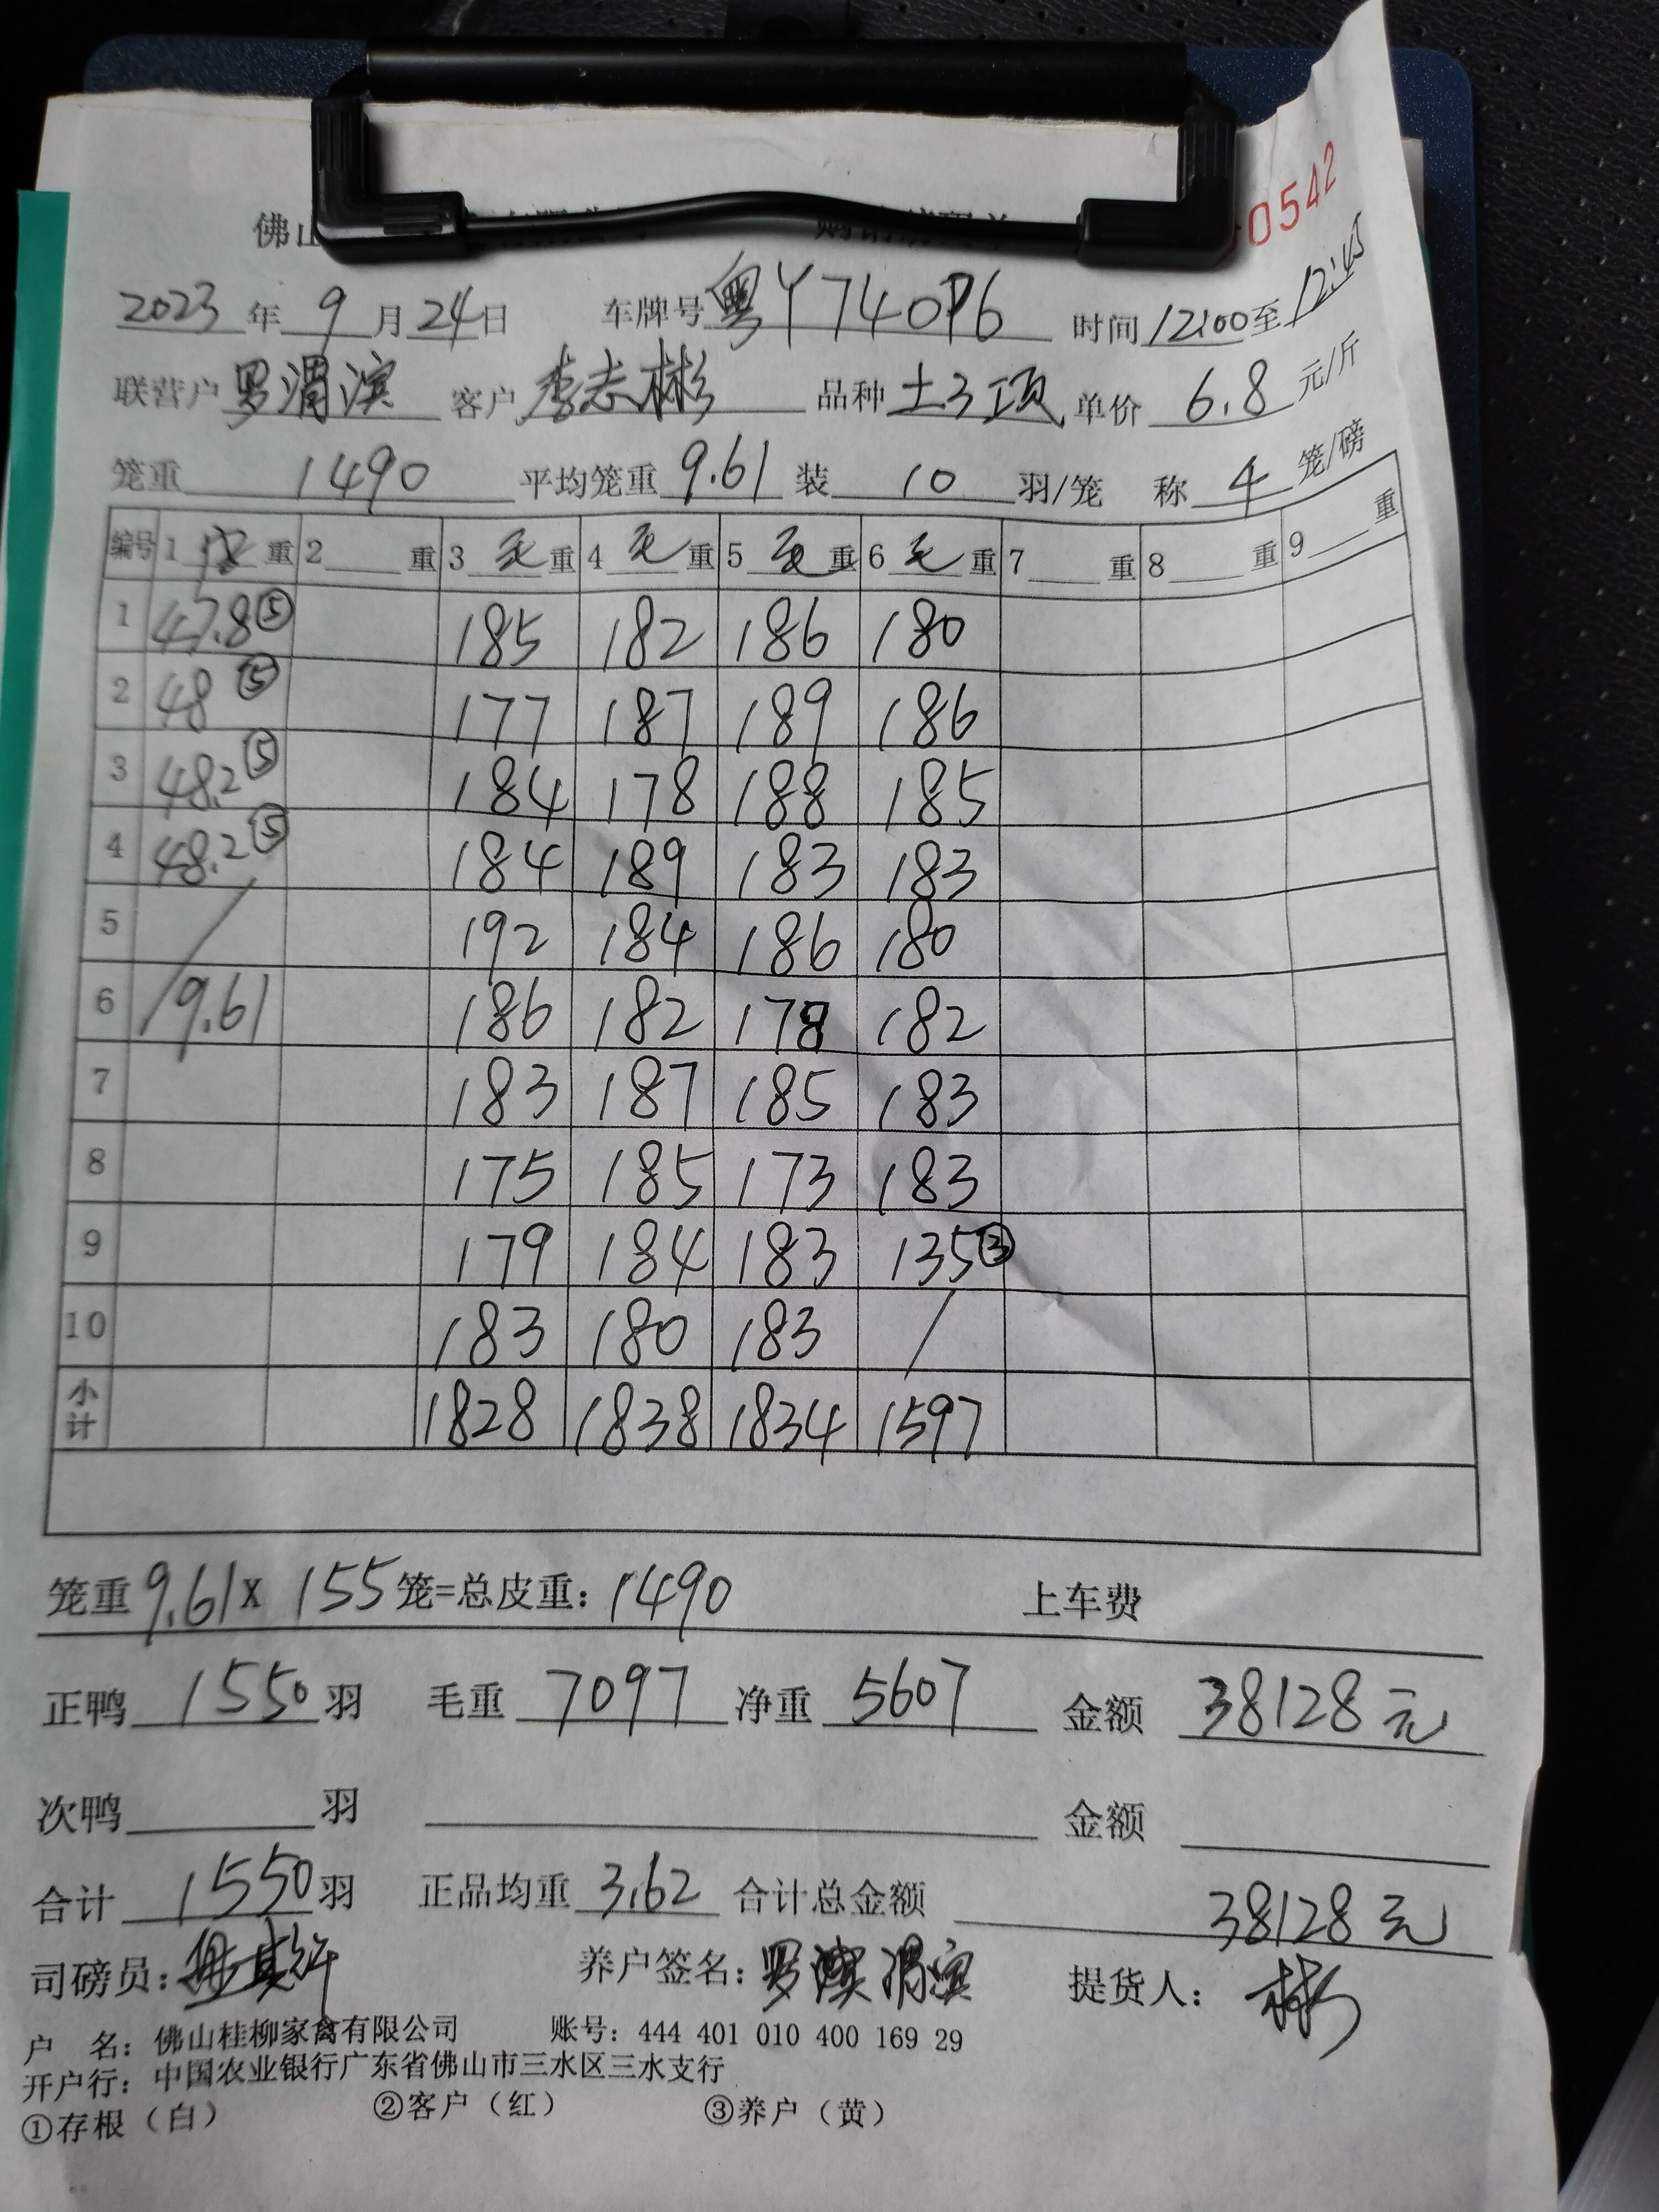 佛山
0542
2023年9月24日 车牌号 粤Y740P6 时间 12:00至12:45
联营户 罗渭滨 客户 李志彬 品种 土3项 单价 6.8 元/斤
笼重 1490 平均笼重 9.61 装 10 羽/笼 称 4 笼/磅
编号 1 皮 重 2 重 3 毛 重 4 毛 重 5 毛 重 6 毛 重 7 重 8 重 9 重
1 47.8⑤ 185 182 186 180
2 48⑤ 177 187 189 186
3 48.2⑤ 184 178 188 185
4 48.2⑤ 184 189 183 183
5 / 192 184 186 180
6 9.61 186 182 178 182
7 183 187 185 183
8 175 185 173 183
9 179 184 183 135③
10 183 180 183 /
小计 1828 1838 1834 1597
笼重 9.61 x 155 笼=总皮重：1490 上车费
正鸭 1550 羽 毛重 7097 净重 5607 金额 38128元
次鸭 羽 金额
合计 1550 羽 正品均重 3.62 合计总金额 38128元
司磅员： 养户签名：罗 渭滨 提货人：彬
户 名：佛山桂柳家禽有限公司 账号：444 401 010 400 169 29
开户行：中国农业银行广东省佛山市三水区三水支行
①存根（白） ②客户（红） ③养户（黄）